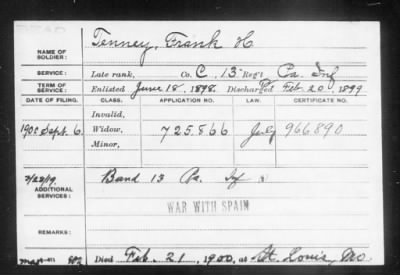 NAME OF SOLDIER: Tenney, Frank H.
SERVICE: Late rank, Co. C, 13 Reg't Pa. Inf
TERM OF SERVICE: Enlisted June 18, 1898. Discharged Feb. 20, 1899
DATE OF FILING. CLASS. APPLICATION NO. LAW. CERTIFICATE NO.
Invalid,
1900 Sept. 6. Widow, 725.866 July 966890
Minor,
ADDITIONAL SERVICES: Band 13 Pa. Inf
WAR WITH SPAIN
REMARKS:
Died Feb. 21, 1900, at St. Louis, Mo.